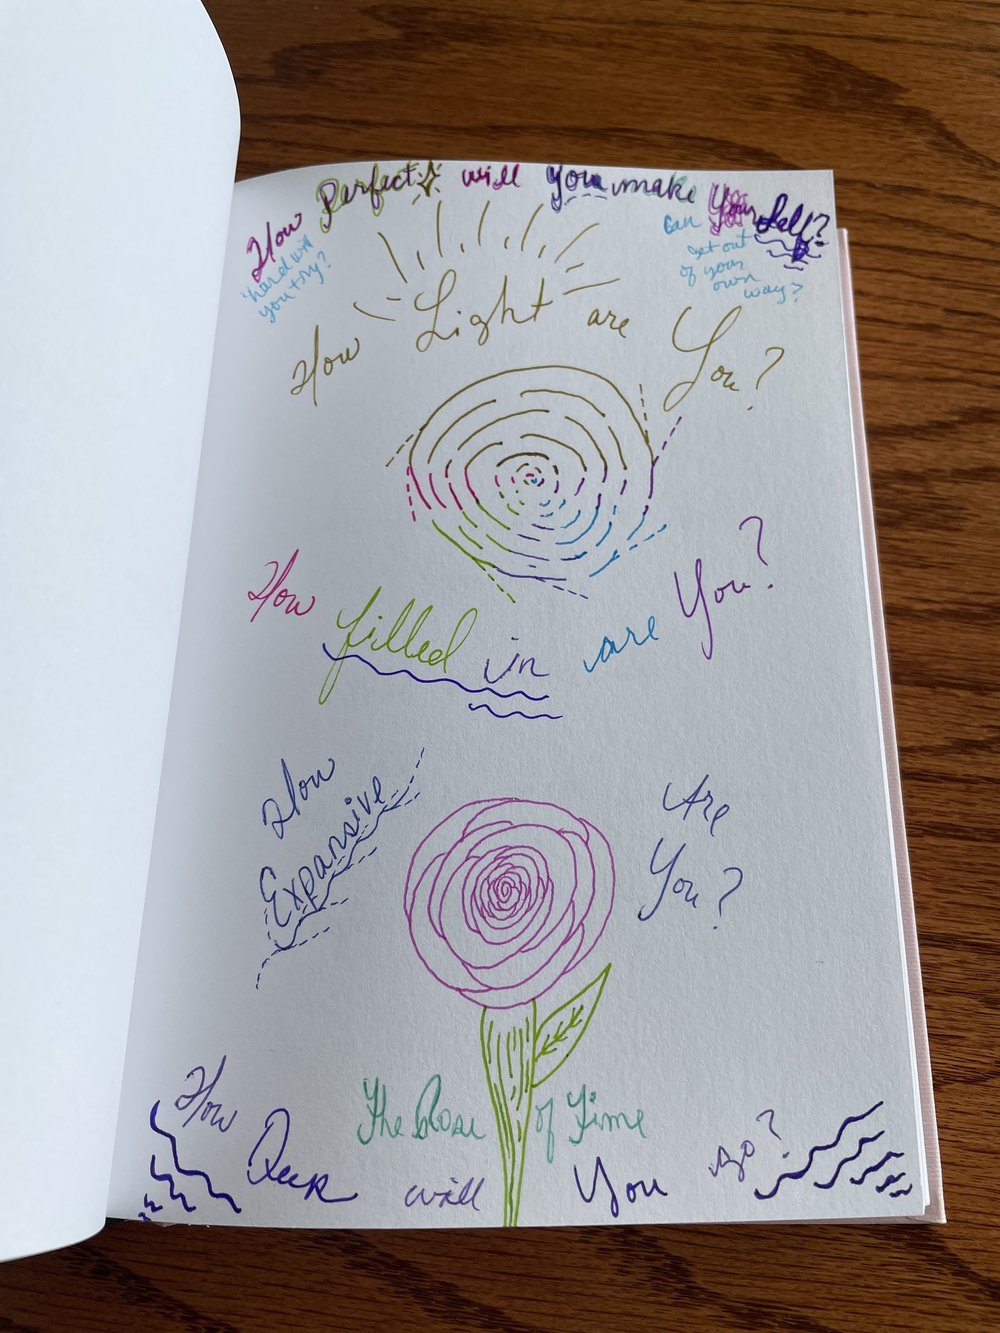 How Perfect will you make Your Self?
hard will
you try?
can
get out
of your
own
way?
How Light are You?
How filled in are You?
How
Expansive
Are
You?
The Rose of Time
How
will You go?